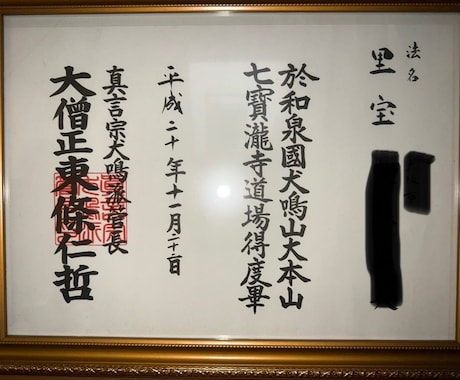 法名
里宝
於和泉國犬鳴山大本山
七寶瀧寺道場得度畢
平成二十年十一月二十二日
真言宗犬鳴派管長
大僧正東條仁哲